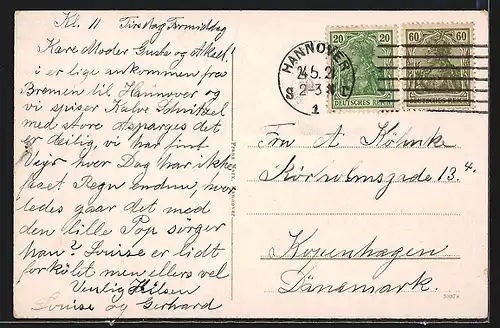 Kl. 11 Tirsdag Formiddag
Kære Moder Gusta og Aksel!
i er lige ankommen fra
Bremen til Hannover og
vi spiser Kalve Schnitzel
med store Asparges det
er deilig, vi har fint
Vejr hver Dag har ikke
faaet Regn endnu, hvor
ledes gaar det med
den lille Pop sørger
han? Louise er lidt
forkölet men ellers vel
Venlig Hilsen
Louise og Gerhard
HANNOVER
24.5.21
2-3 N
1
20 20
DEUTSCHES REICH
60 60
DEUTSCHES REICH
Fru A Köhnke
13.4.
Kopenhagen
Dänemark.